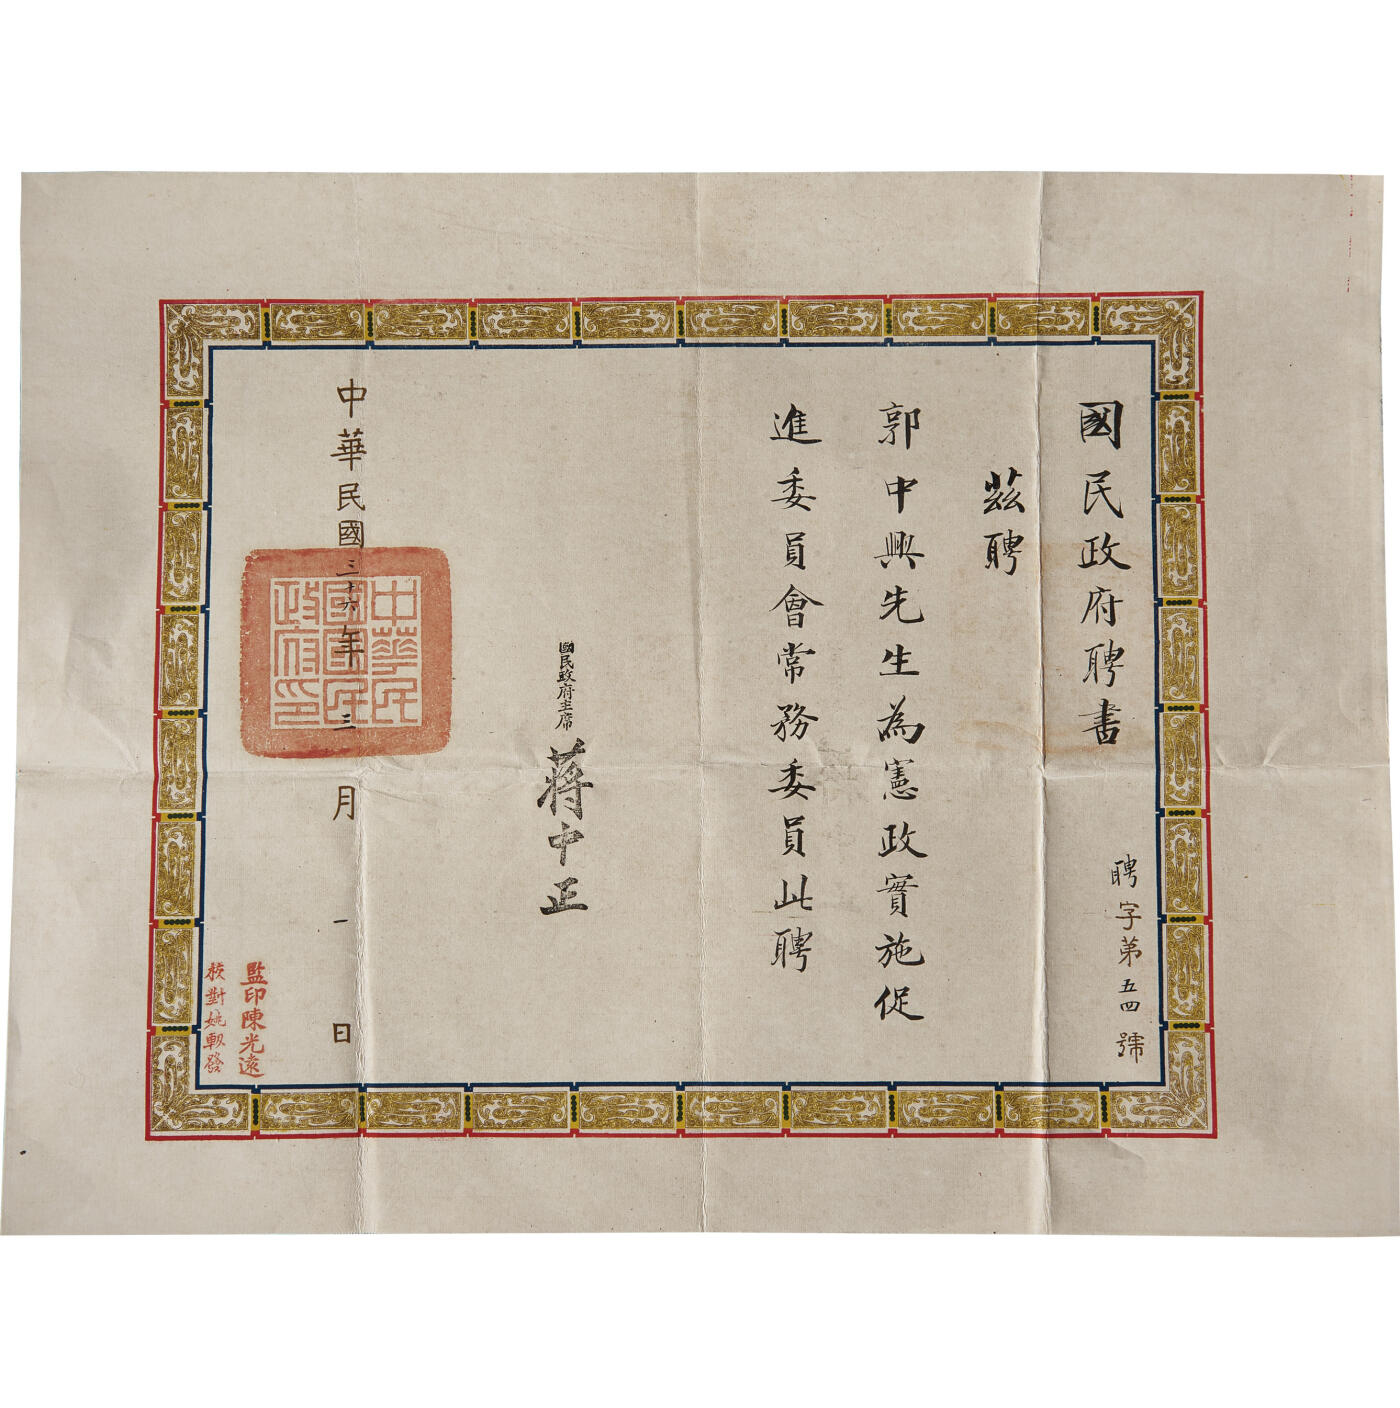 國民政府聘書
聘字第五四號
茲聘
郭中興先生為憲政實施促
進委員會常務委員此聘
國民政府主席 蔣中正
中華民國三十六年三月一日
中華民國國民政府印
監印陳光遠
校對姚軔發